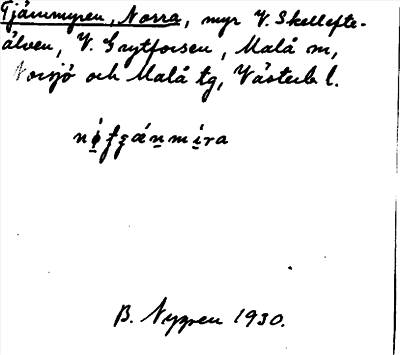 Tjärnmyren, Norra, myr V. Skellefte-
älven, V. Grytforsen, Malå sn,
Norsjö och Malå tg, Västerb. l.
B. Nygren 1930.